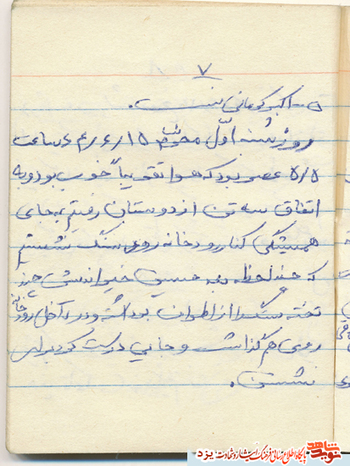 ۷
۵- اکبر کرمانی نسب.
روز شنبه اول محرم ۶۰/۶/۱۵ ساعت
۵/۵ عصر بود که هوا تقریباً خوب بود و به
اتفاق سه تن از دوستان رفتیم به جای
همیشگی کنار رودخانه روی سنگ نشستیم
که چند لحظه بعد حسین خیراندیش چند
تخته سنگ را از اطراف برداشته و در داخل رودخانه
روی هم گذاشت و جایی درست کرد برای
نشستن.
نوید شاهد
پایگاه اطلاع رسانی فرهنگ ایثار و شهادت یزد